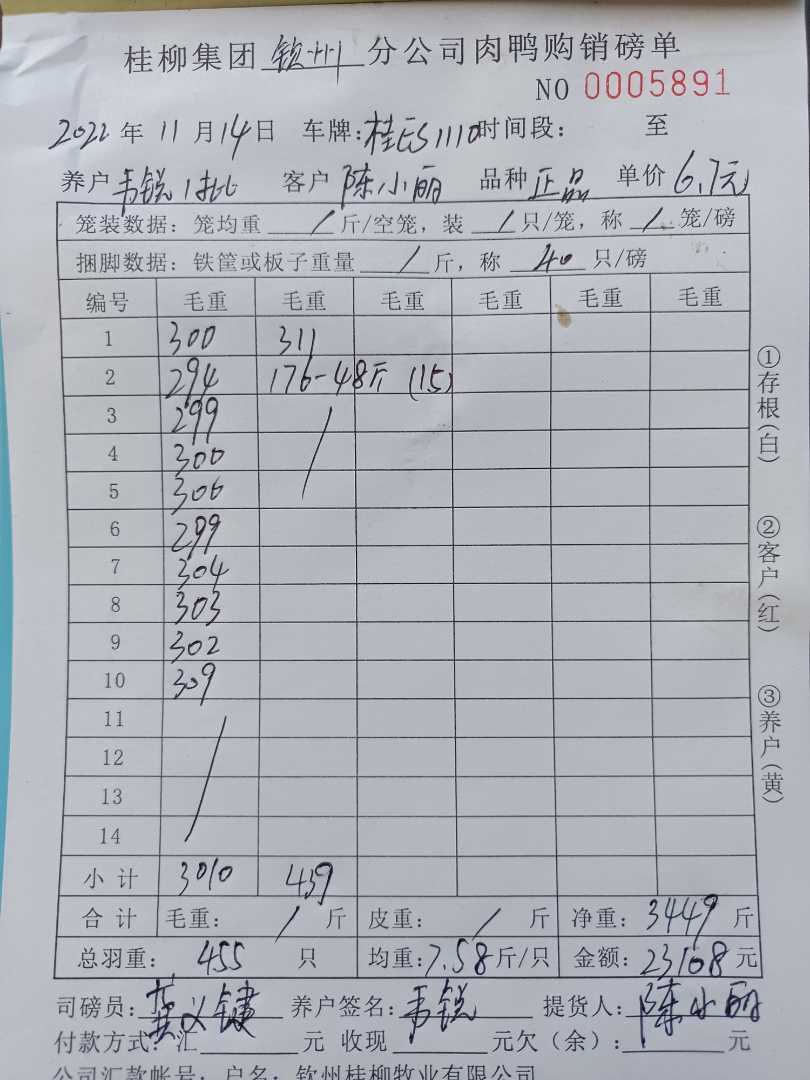 桂柳集团 钦州 分公司肉鸭购销磅单
NO 0005891
2022 年 11 月 14 日 车牌: 桂ES1110 时间段: 至
养户 韦锐1批 客户 陈小丽 品种 正品 单价 6.7元
笼装数据: 笼均重 / 斤/空笼, 装 / 只/笼, 称 / 笼/磅
捆脚数据: 铁筐或板子重量 / 斤, 称 40 只/磅
编号 毛重 毛重 毛重 毛重 毛重 毛重
1 300 311
2 294 176-48斤 (15)
3 299 /
4 300
5 300
6 299
7 304
8 303
9 302
10 309
11 /
12
13
14
小计 3010 439
合计 毛重: / 斤 皮重: / 斤 净重: 3449 斤
总羽重: 455 只 均重: 7.58 斤/只 金额: 23108 元
司磅员: 义键 养户签名: 韦锐 提货人: 陈小丽
付款方式: 汇 元 收现 元欠(余): 元
公司汇款帐号: 户名: 钦州桂柳牧业有限公司
①存根(白)
②客户(红)
③养户(黄)